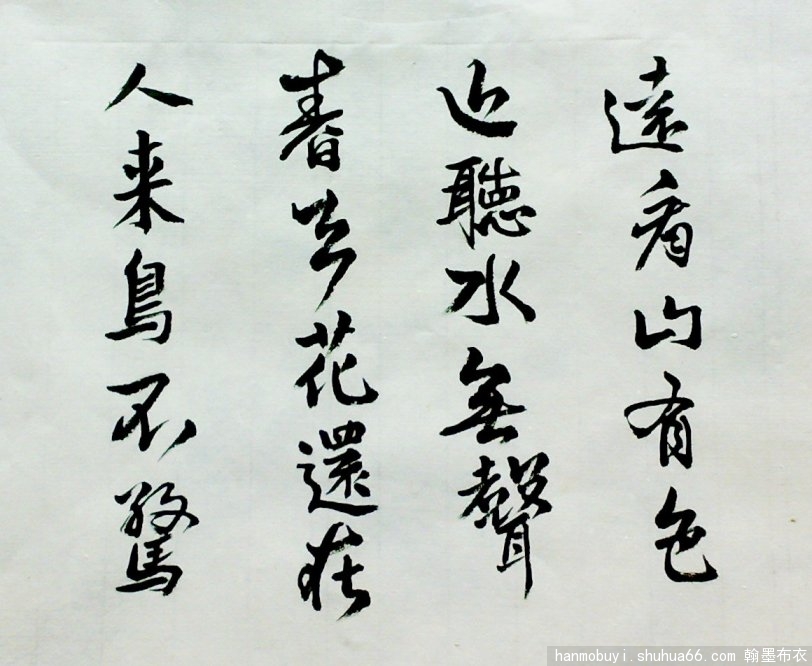 遠看山有色
近聽水無聲
春去花還在
人来鳥不驚
hanmobuyi.shuhua66.com 翰墨布衣